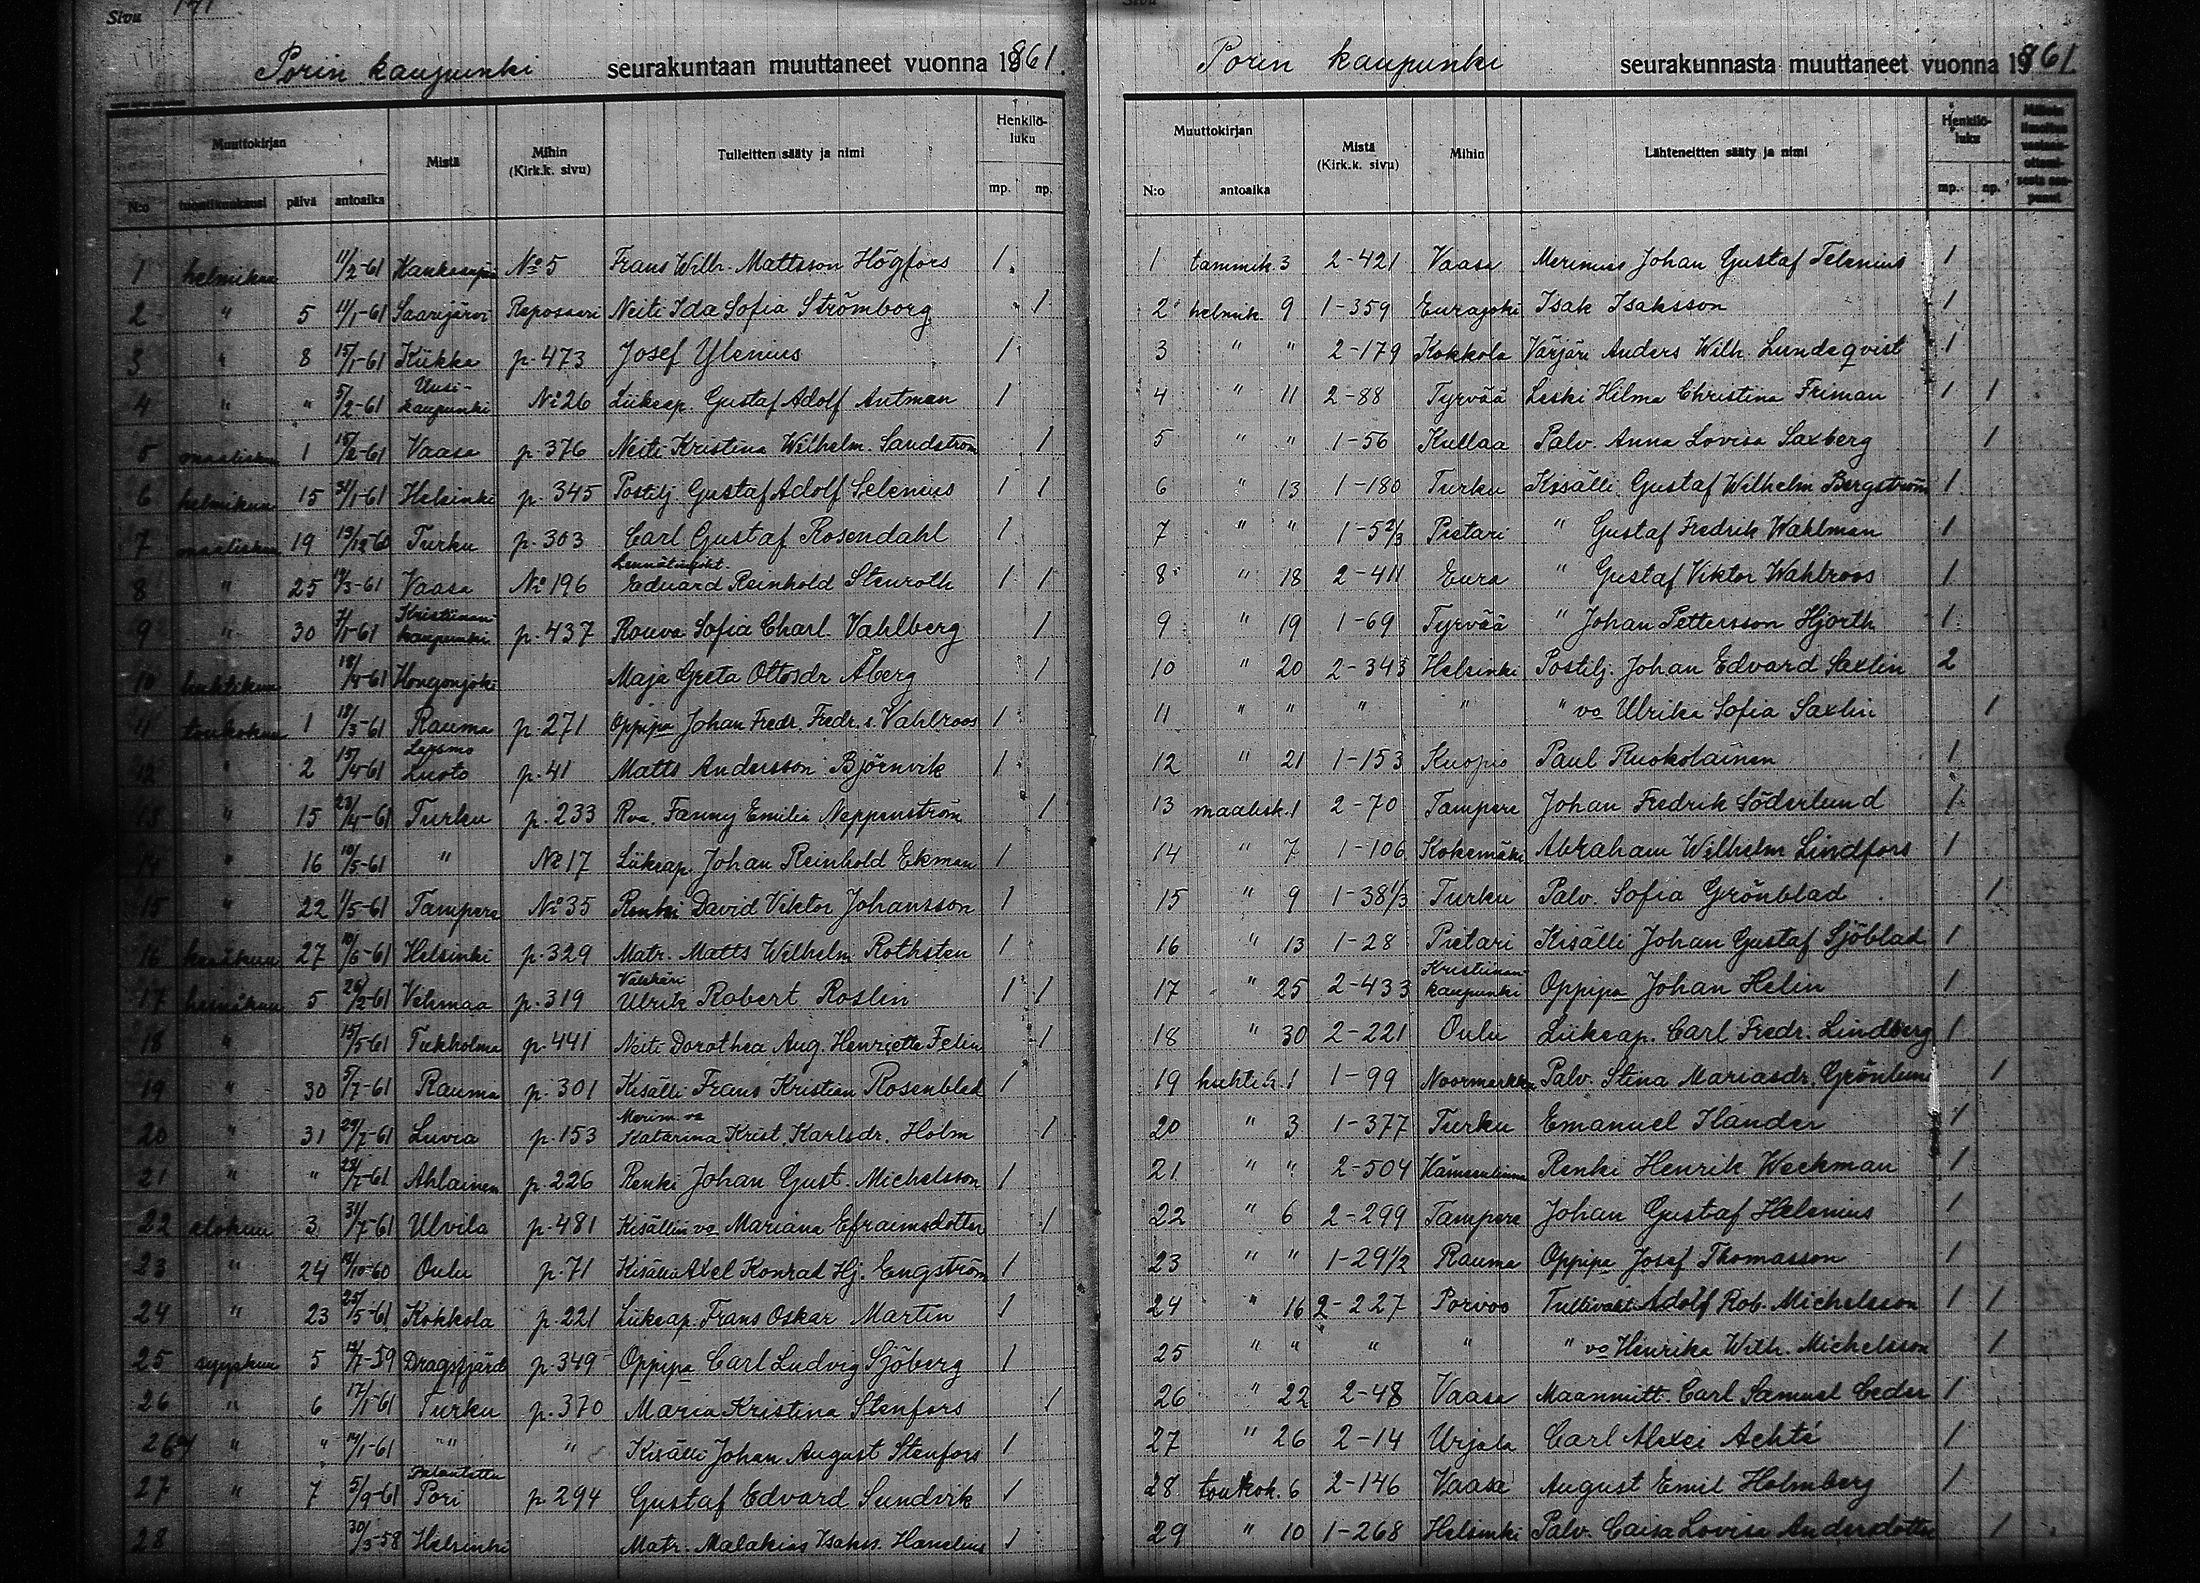 Sivu 171
Porin kaupunki seurakuntaan muuttaneet vuonna 1861.
Muuttokirjan Mistä Mihin (Kirk.k. sivu) Tulleitten sääty ja nimi Henkilö-luku
N:o tuontikuukausi päivä antoaika mp. np.
1 helmikuu 11/2-61 Kankaanpää No 5 Frans Wilh. Mattsson Högfors 1
2 " 5 11/1-61 Saarijärvi Reposaari Neiti Ida Sofia Strömborg 1
3 " 8 15/1-61 Kiikka p. 473 Josef Ylenius 1
4 " " 5/2-61 Uusi-kaupunki No 26 Liikeap. Gustaf Adolf Autman 1
5 maalisku 1 15/2-61 Vaasa p. 376 Neiti Kristina Wilhelm. Sandström 1
6 helmikuu 15 31/1-61 Helsinki p. 345 Postilj. Gustaf Adolf Selenius 1 1
7 maalisku 19 19/12-60 Turku p. 303 Carl Gustaf Rosendahl 1
8 " 25 /3-61 Vaasa No 196 Eduard Reinhold Stenroth 1 1
9 " 30 /1-61 Kristiinan kaupunki p. 437 Rouva Sofia Charl. Vahlberg 1
10 huhtikuu 18/4-61 Hongonjoki Maja Greta Ottosdr Åberg 1
11 toukokuu 1 18/3-61 Rauma p. 271 Oppipo Johan Fredr. Fredr. s. Vahlroos 1
12 " 2 15/4-61 Luoto p. 41 Matts Andersson Björnvik 1
13 " 15 23/4-61 Turku p. 233 Rva. Fanny Emilia Neppenström 1
14 " 16 10/5-61 " No 17 Liikeap. Johan Reinhold Ekman 1
15 " 22 11/5-61 Tampere No 35 Renki David Viktor Johansson 1
16 kesäkuu 27 10/6-61 Helsinki p. 329 Matr. Matts Wilhelm Rothsten 1
17 heinäkuu 5 26/2-61 Vehmaa p. 319 Välskäri Ulrik Robert Roslin 1 1
18 " 15/5-61 Tukholma p. 441 Neiti Dorothea Aug. Henriette Felin 1
19 " 30 5/7-61 Rauma p. 301 Kisälli Frans Kristian Rosenblad 1
20 " 31 29/7-61 Luvia p. 153 Merim. va Katarina Krist. Karlsdr. Holm 1
21 " " 28/7-61 Ahlainen p. 226 Renki Johan Gust. Michelsson 1
22 elokuu 3 31/7-61 Ulvila p. 481 Kisällin vo Mariana Efraimsdotter 1
23 " 24 /10-60 Oulu p. 71 Kisälli Axel Konrad Hj. Engström 1
24 " 23 25/5-61 Kokkola p. 221 Liikeap. Frans Oskar Martin 1
25 syyskuu 5 /7-59 Dragsfjärd p. 349 Oppipo Carl Ludvig Sjöberg 1
26 " 6 17/1-61 Turku p. 370 Maria Kristina Stenfors 1
26 " " /1-61 " " Kisälli Johan August Stenfors 1
27 " 7 5/9-61 Palautettu Pori p. 294 Gustaf Edvard Sundvik 1
28 30/3-58 Helsinki Matr. Malakias Isaks. Hanelius 1
Sivu
Porin kaupunki seurakunnasta muuttaneet vuonna 1861
Muuttokirjan Mistä (Kirk.k. sivu) Mihin Lähteneitten sääty ja nimi Henkilö-luku
N:o antoaika mp. np.
1 tammik. 3 2-421 Vaasa Merimies Johan Gustaf Telenius 1
2 helmik. 9 1-359 Eurajoki Isak Isaksson 1
3 " " 2-179 Kokkola Värjäri Anders Wilh. Lundeqvist 1
4 " 11 2-88 Tyrvää Leski Hilma Christina Friman 1 1
5 " " 1-56 Kullaa Palv. Anna Lovisa Saxberg 1
6 " 13 1-180 Turku Kisälli Gustaf Wilhelm Bergström 1
7 " " 1-52/3 Pietari " Gustaf Fredrik Wahlman 1
8 " 18 2-411 Eura " Gustaf Viktor Wahlroos 1
9 " 19 1-69 Tyrvää " Johan Pettersson Hjorth 1
10 " 20 2-343 Helsinki Postilj. Johan Edvard Saxlin 2
11 " " " " " vo Ulrika Sofia Saxlin 1
12 " 21 1-153 Kuopio Paul Ruokolainen 1
13 maalisk. 1 2-70 Tampere Johan Fredrik Söderlund 1
14 " 7 1-106 Kokemäki Abraham Wilhelm Lindfors 1
15 " 9 1-381/3 Turku Palv. Sofia Grönblad 1
16 " 13 1-28 Pietari Kisälli Johan Gustaf Sjöblad 1
17 " 25 2-433 Kristiinan-kaupunki Oppipo Johan Helin 1
18 " 30 2-221 Oulu Liikeap. Carl Fredr. Lindberg 1
19 huhtik. 1 1-99 Noormarkku Palv. Stina Mariasdr. Grönlund 1
20 " 3 1-377 Turku Emanuel Ilander 1
21 " " 2-504 Hämeenlinna Renki Henrik Weckman 1
22 " 6 2-299 Tampere Johan Gustaf Helenius 1
23 " " 1-291/2 Rauma Oppipo Josef Thomasson 1
24 " 16 2-227 Porvoo Tullivaht. Adolf Rob. Michelsson 1 1
25 " " " " " vo Henrika Wilh. Michelsson 1
26 " 22 2-48 Vaasa Maanmitt. Carl Samuel Ceder 1
27 " 26 2-14 Urjala Carl Alexei Achté 1
28 toukok. 6 2-146 Vaasa August Emil Holmberg 1
29 " 10 1-268 Helsinki Palv. Caisa Lovisa Andersdotter 1